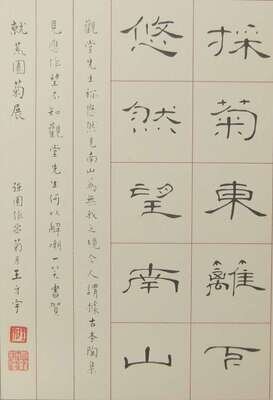 採菊東籬下
悠然望南山
觀堂先生称悠然見南山為無我之境今人謂據古本陶集
見應作望不知觀堂先生何以解嘲一八七書賀
就荒園菊展
強圉作噩菊月王